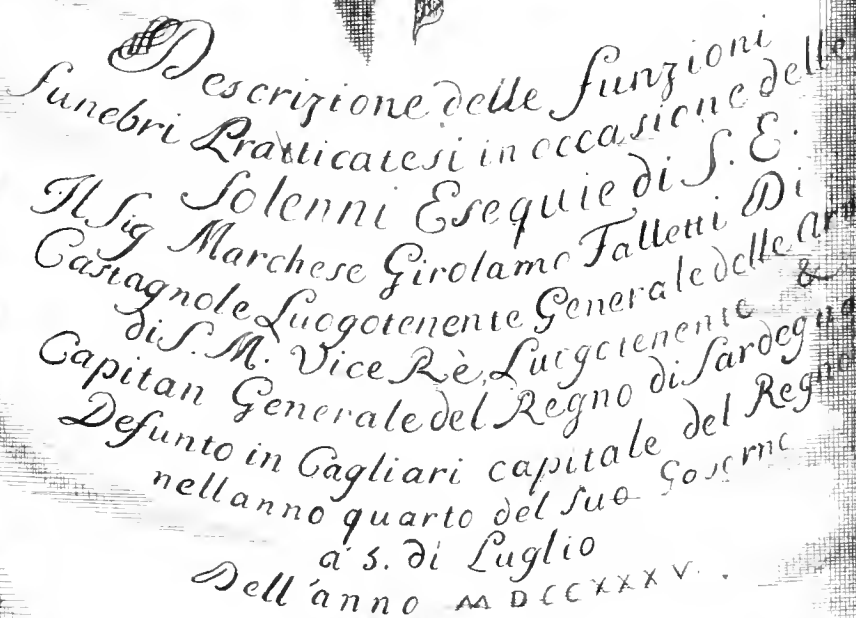 Descrizione delle funzioni
funebri Pratticatesi in occasione delle
Solenni Esequie di S. E.
Il Sig Marchese Girolamo Falletti Di
Castagnole Luogotenente Generale delle Arm
di S. M. Vice Rè, Luogotenente &
Capitan Generale del Regno di Sardegna
Defunto in Cagliari capitale del Regno
nell anno quarto del suo Governo
a 5. di Luglio
Dell'anno MDCCXXXV.